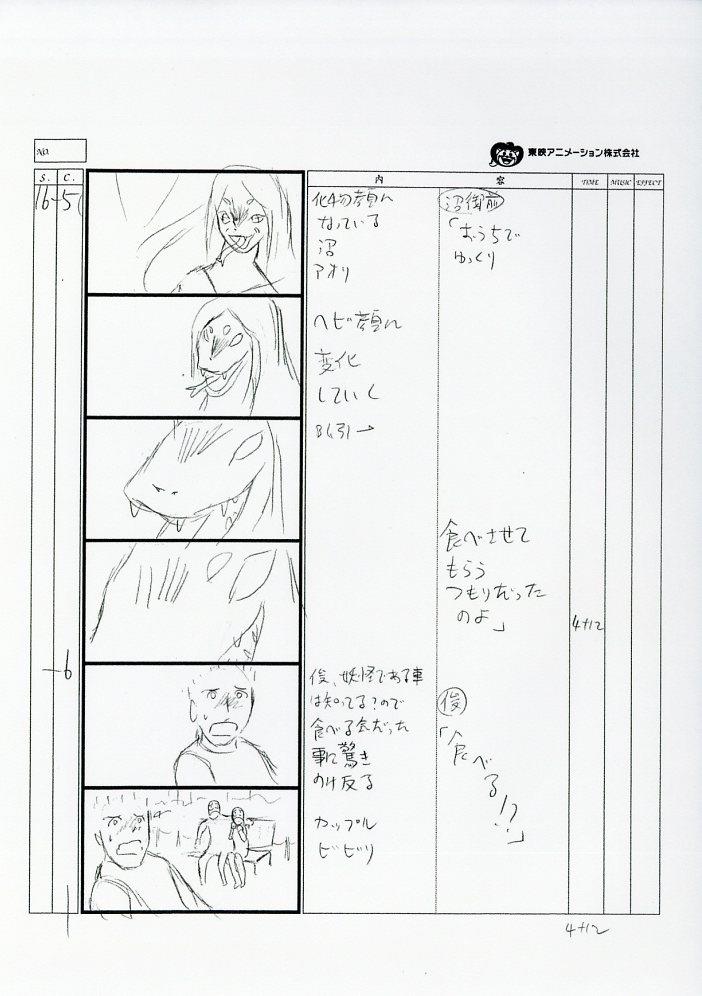 No.
東映アニメーション株式会社
S. C. 内 容 TIME MUSIC EFFECT
16-5
化物顔に
なっている
沼
アオリ
沼御前
「おうちで
ゆっくり
ヘビ顔に
変化
していく
BG引→
食べさせて
もらう
つもりだった
のよ」
4+12
-6
俊、妖怪である事
は知ってる?ので
食べる会だった
事に驚き
のけ反る
カップル
ビビり
俊
「食べ
る!?」
4+12